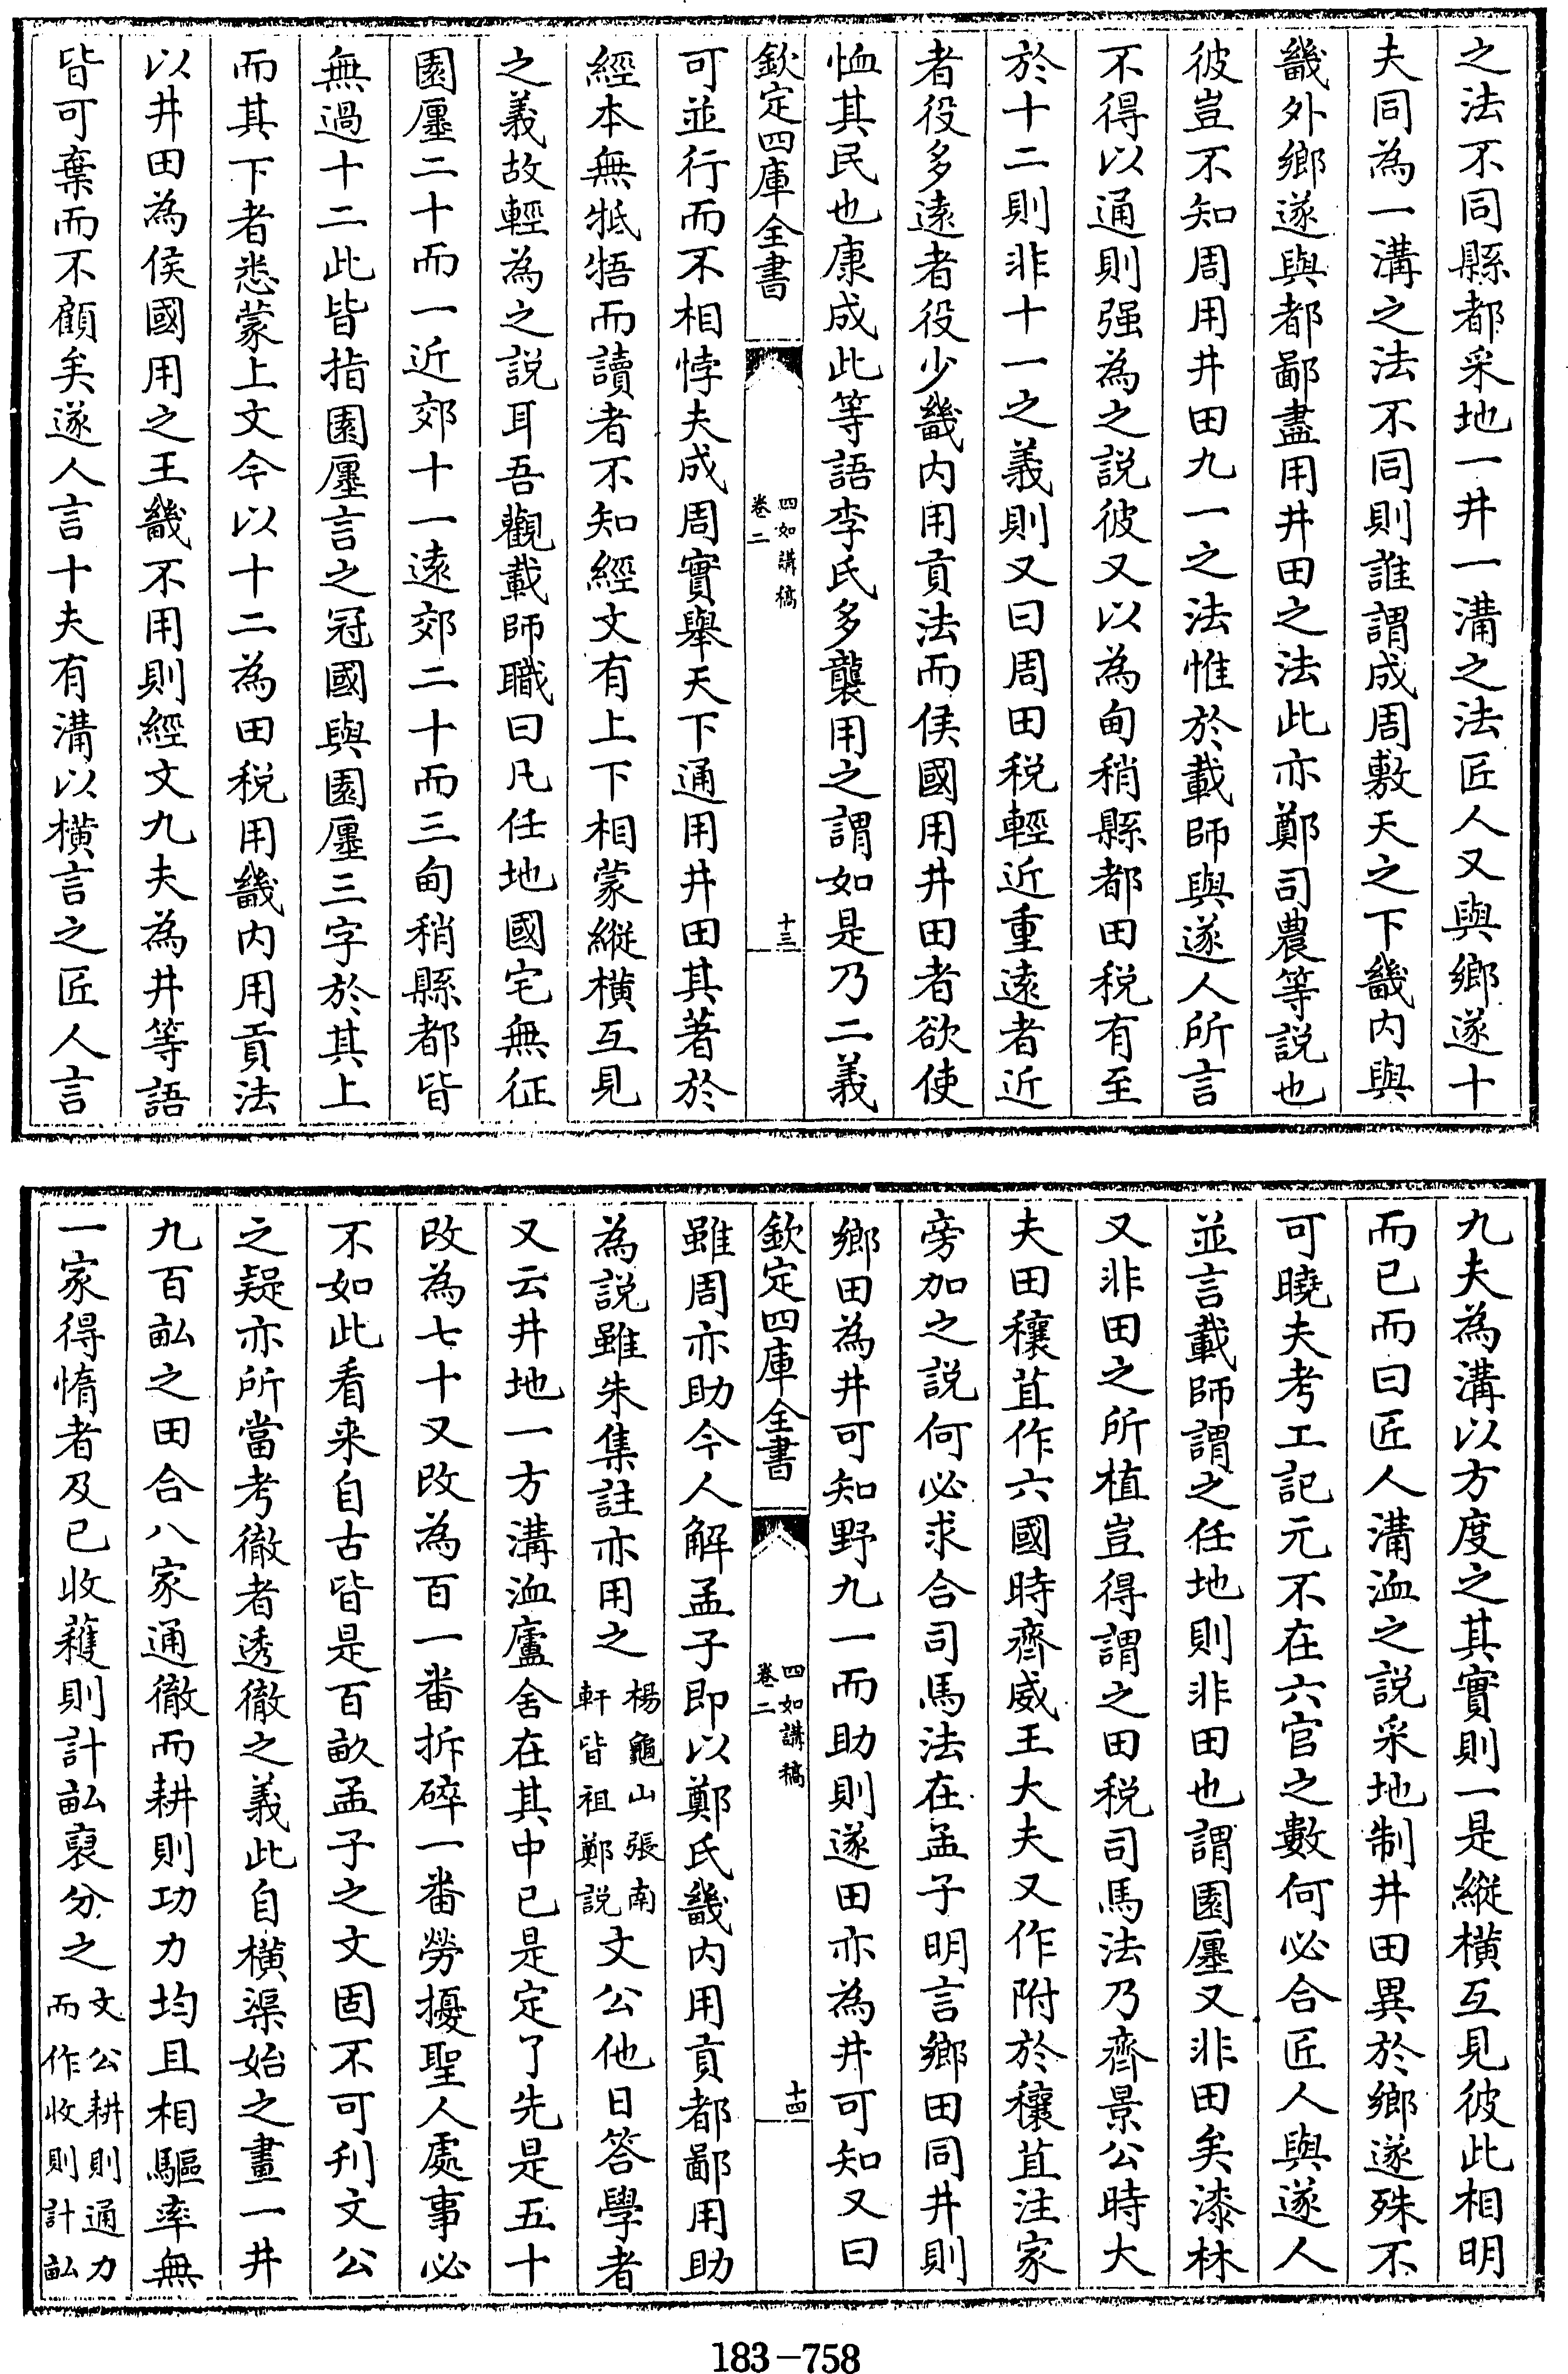 之法不同縣都采地一井一溝之法匠人又與鄉遂十
夫同為一溝之法不同則誰謂成周敷天之下畿内與
畿外鄉遂與都鄙盡用井田之法此亦鄭司農等説也
彼豈不知周用井田九一之法惟於載師與遂人所言
不得以通則强為之説彼又以為甸稍縣都田税有至
於十二則非十一之義則又曰周田税輕近重遠者近
者役多遠者役少畿内用貢法而侯國用井田者欲使
恤其民也康成此等語李氏多襲用之謂如是乃二義
欽定四庫全書
四如講稿
卷二
十三
可並行而不相悖夫成周實舉天下通用井田其著於
經本無牴牾而讀者不知經文有上下相蒙縱横互見
之義故輕為之説耳吾觀載師職曰凡任地國宅無征
園廛二十而一近郊十一遠郊二十而三甸稍縣都皆
無過十二此皆指園廛言之冠國與園廛三字於其上
而其下者悉蒙上文今以十二為田税用畿内用貢法
以井田為侯國用之王畿不用則經文九夫為井等語
皆可棄而不顧矣遂人言十夫有溝以横言之匠人言
九夫為溝以方度之其實則一是縱横互見彼此相明
而已而曰匠人溝洫之説采地制井田異於鄉遂殊不
可曉夫考工記元不在六官之數何必合匠人與遂人
並言載師謂之任地則非田也謂園廛又非田矣漆林
又非田之所植豈得謂之田税司馬法乃齊景公時大
夫田穰苴作六國時齊威王大夫又作附於穰苴注家
旁加之説何必求合司馬法在孟子明言鄉田同井則
鄉田為井可知野九一而助則遂田亦為井可知又曰
欽定四庫全書
四如講稿
卷二
十四
雖周亦助今人解孟子即以鄭氏畿内用貢都鄙用助
為説雖朱集註亦用之楊龜山張南軒皆祖鄭説文公他日答學者
又云井地一方溝洫廬舍在其中已是定了先是五十
改為七十又改為百一畨拆碎一畨勞擾聖人處事必
不如此看来自古皆是百畝孟子之文固不可刋文公
之疑亦所當考徹者透徹之義此自横渠始之畫一井
九百畝之田合八家通徹而耕則功力均且相驅率無
一家得惰者及已收穫則計畝裒分之文公耕則通力而作收則計畝
183-758